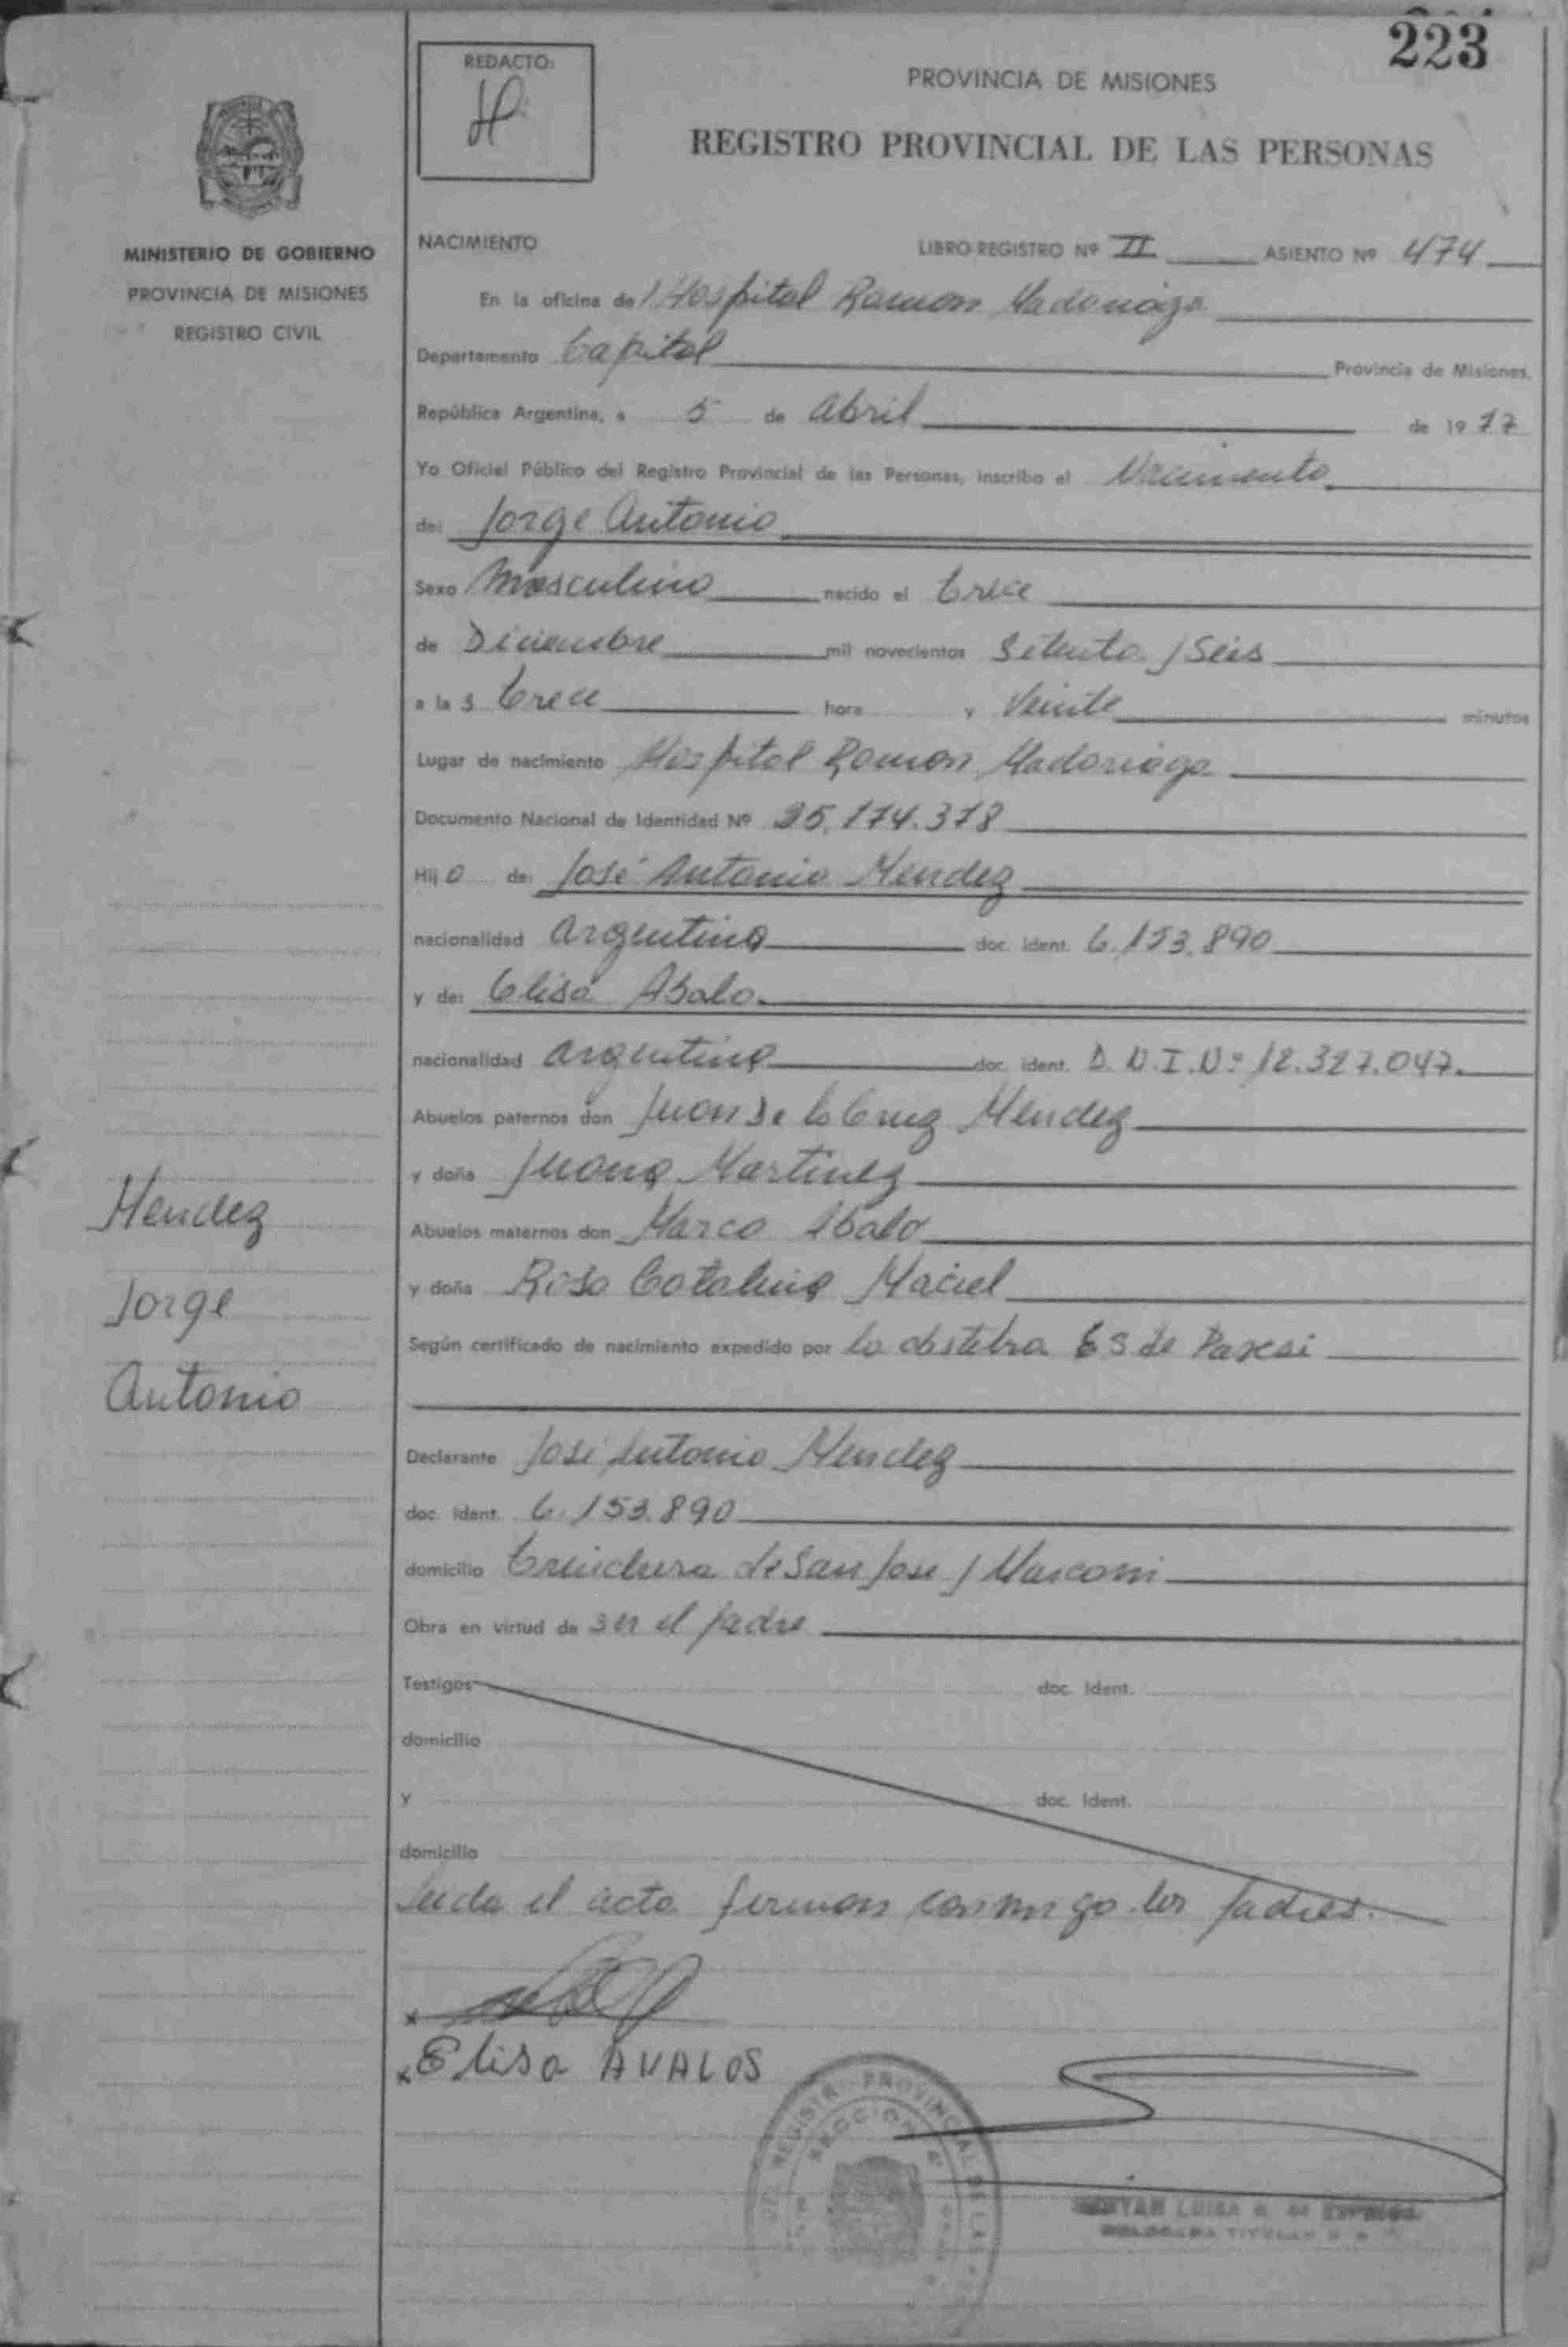 223
REDACTO:
PROVINCIA DE MISIONES
REGISTRO PROVINCIAL DE LAS PERSONAS
MINISTERIO DE GOBIERNO
PROVINCIA DE MISIONES
REGISTRO CIVIL
NACIMIENTO LIBRO-REGISTRO Nº II ASIENTO Nº 474
En la oficina del Hospital Ramon Madariaga
Departamento Capital Provincia de Misiones,
República Argentina, a 5 de Abril de 1977
Yo Oficial Público del Registro Provincial de las Personas, inscribo el Nacimiento
de: Jorge Antonio
Sexo Masculino nacido el trece
de Diciembre mil novecientos Setenta y Seis
a las trece hora y Veinte minutos
Lugar de nacimiento Hospital Ramon Madariaga
Documento Nacional de Identidad Nº 25.174.378
Hijo de: José Antonio Mendez
nacionalidad argentina doc. ident. 6.153.890
y de: Elisa Abalo
nacionalidad argentina doc. ident. D.N.I.Nº 12.327.047.
Abuelos paternos don Juan De la Cruz Mendez
y doña Juana Martinez
Abuelos maternos don Marco Abalo
y doña Rosa Catalina Maciel
Según certificado de nacimiento expedido por la obstetra ES de
Declarante José Antonio Mendez
doc. ident. 6.153.890
domicilio Trinchera de San Jose y Marconi
Obra en virtud de ser el padre
Testigos doc. Ident.
domicilio
y doc. Ident.
domicilio
Leida el acta firman conmigo los padres.
x
x Elisa AVALOS
Mendez
Jorge
Antonio
REGISTRO PROVINCIAL DE LAS
SECCION
LUISA
TITULAR